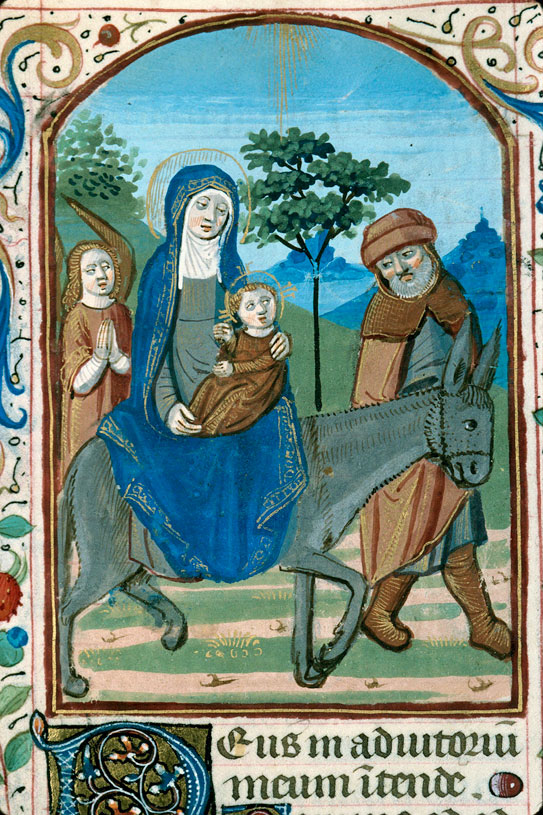 Deus in adiutoriū
meum ītende.